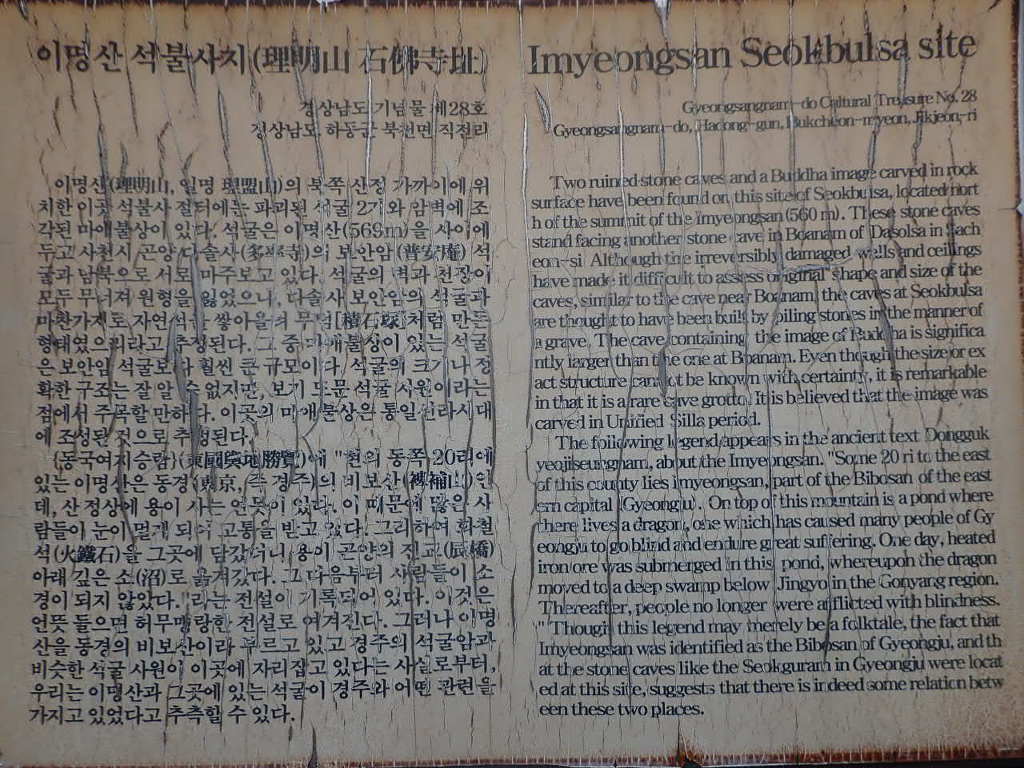 이명산 석불사지(理明山 石佛寺址)
경상남도 기념물 제28호
경상남도 하동군 북천면 직전리
이명산(理明山, 일명 理盟山)의 북쪽 산정 가까이에 위
치한 이곳 석불사 절터에는 파괴된 석굴 2기와 암벽에 조
각된 마애불상이 있다. 석굴은 이명산(569m)을 사이에
두고 사천시 곤양 다솔사(多率寺)의 보안암(普安庵) 석
굴과 남북으로 서로 마주보고 있다. 석굴의 벽과 천장이
모두 무너져 원형을 잃었으나, 다솔사 보안암의 석굴과
마찬가지로 자연석을 쌓아올려 무덤[積石塚]처럼 만든
형태였으리라고 추정된다. 그 중 마애불상이 있는 석굴
은 보안암 석굴보다 훨씬 큰 규모이다. 석굴의 크기나 정
확한 구조는 잘 알 수 없지만, 보기 드문 석굴 사원이라는
점에서 주목할 만하다. 이곳의 마애불상은 통일신라시대
에 조성된 것으로 추정된다.
{동국여지승람}(東國輿地勝覽)에 "현의 동쪽 20리에
있는 이명산은 동경(東京, 즉 경주)의 비보산(裨補山)인
데, 산 정상에 용이 사는 연못이 있다. 이 때문에 많은 사
람들이 눈이 멀게 되어 고통을 받고 있다. 그리하여 화철
석(火鐵石)을 그곳에 담갔더니 용이 곤양의 진교(辰橋)
아래 깊은 소(沼)로 옮겨갔다. 그 다음부터 사람들이 소
경이 되지 않았다."라는 전설이 기록되어 있다. 이것은
언뜻 들으면 허무맹랑한 전설로 여겨진다. 그러나 이명
산을 동경의 비보산이라 부르고 있고 경주의 석굴암과
비슷한 석굴 사원이 이곳에 자리잡고 있다는 사실로부터,
우리는 이명산과 그곳에 있는 석굴이 경주와 어떤 관련을
가지고 있었다고 추측할 수 있다.
Imyeongsan Seokbulsa site
Gyeongsangnam-do Cultural Treasure No. 28
Gyeongsangnam-do, Hadong-gun, Bukcheon-myeon, Jikjeon-ri
Two ruined stone caves and a Buddha image carved in rock
surface have been found on this site of Seokbulsa, located nort
h of the summit of the Imyeongsan (560 m). These stone caves
stand facing another stone cave in Boanam of Dasolsa in Sach
eon-si. Although the irreversibly damaged walls and ceilings
have made it difficult to assess original shape and size of the
caves, similar to the cave near Boanam, the caves at Seokbulsa
are thought to have been built by piling stones in the manner of
a grave. The cave containing the image of Buddha is significa
ntly larger than the one at Boanam. Even though the size or ex
act structure cannot be known with certainty, it is remarkable
in that it is a rare cave grotto. It is believed that the image was
carved in Unified Silla period.
The following legend appears in the ancient text Dongguk
yeojiseungnam, about the Imyeongsan. "Some 20 ri to the east
of this county lies imyeongsan, part of the Bibosan of the east
ern capital (Gyeongju). On top of this mountain is a pond where
there lives a dragon, one which has caused many people of Gy
eongju to go blind and endure great suffering. One day, heated
iron ore was submerged in this pond, whereupon the dragon
moved to a deep swamp below Jingyo in the Gonyang region.
Thereafter, people no longer were afflicted with blindness.
" Though this legend may merely be a folktale, the fact that
Imyeongsan was identified as the Bibosan of Gyeongju, and th
at the stone caves like the Seokguram in Gyeongju were locat
ed at this site, suggests that there is indeed some relation betw
een these two places.